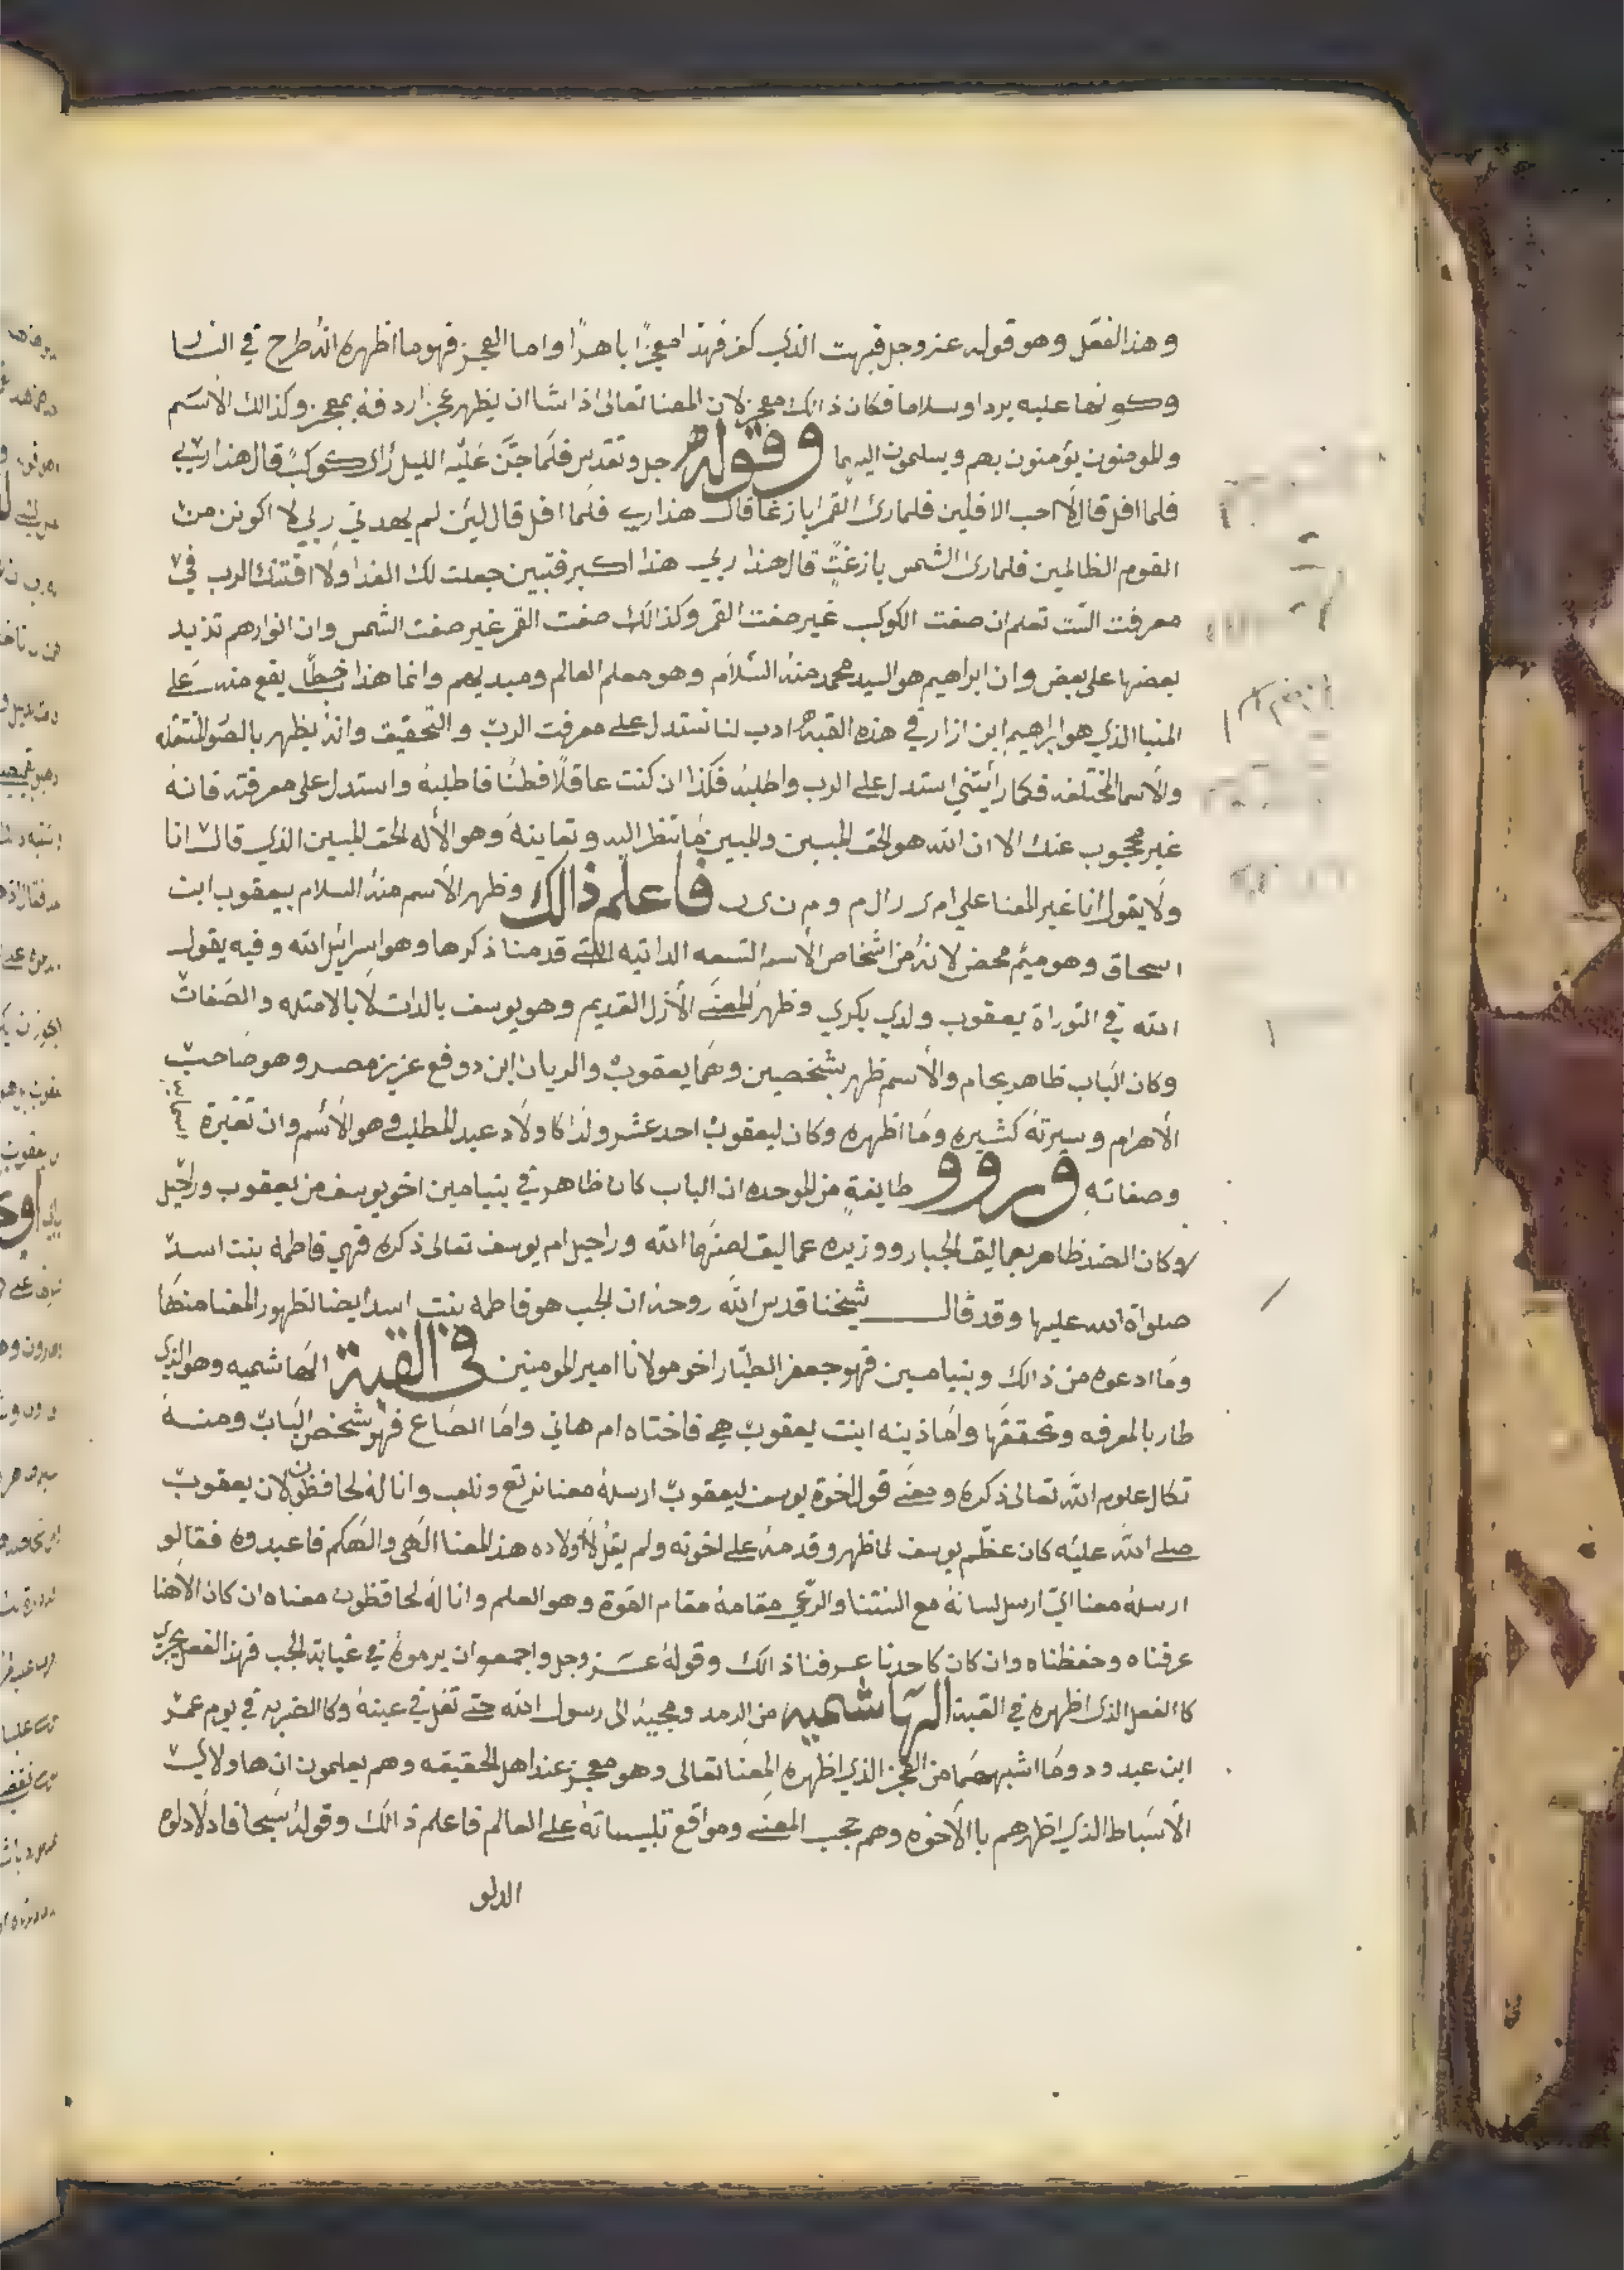 وهذا الفعل وهو قوله عز وجل فبهت الذي كفر فهذا معجزًا باهرًا واما العجز فهو ما اظهره انه طرح في النار
وكونها عليه بردا وسلاما فكان ذالك معجز لان المعنا تعالى اذا شا ان يظهر عجز اردفه بمعجز وكذالك الاسم
والمومنون يؤمنون بهم ويسلمون اليهما وقوله جل وتقدس فلما جن عليه الليل رأى كوكبً قال هذا ربي
فلما افل قال لا احب الافلين فلما رئ القمر بازغا قال هذا ربي فلما افل قال ليئن لم يهدني ربي لا اكونن من
القوم الظالمين فلما رئ الشمس بازغتٍ قال هذا ربي هذا اكبر فتبين جعلت لك الفدا ولا افتنك الرب في
معرفت الت تعلم ان صفت الكوكب غير صفت القمر وكذالك صفت القمر غير صفت الشمس وان انوارهم تزيد
بعضها على بعض وان ابراهيم هو السيد محمد منه السلام وهو معلم العالم ومبديهم وانما هذا خطا يقع منه على
المنبا الذي هو ابراهيم ابن ازار في هذه القبه ادب لنا نستدل على معرفت الرب والتحقيق وانه يظهر بالصور المتنقله
والاسما المختلفه فكما رأيتني استدل على الرب واطلبه فكذا ان كنت عاقلًا فطنًا فاطلبه واستدل على معرفته فانه
غير محجوب عنك الا ان الله هو الحق المبين والمبين ما تنظر اليه وتعاينه وهو الأله الحق المبين الذي قال انا
ولا يقول انا غير المعنا علي ام ى ر ال م وم ن ى ن فاعلم ذالك وظهر الأسم منه السلام بيعقوب ابن
اسحاق وهو ميم محض لانه من اشخاص الأسم التسعه الداتيه التي قدمنا ذكرها وهو اسرايل الله وفيه يقول
الله في التوراة يعقوب ولدي بكري وظهر المعنى الأزل القديم وهو يوسف بالدات لا بالامتله والصفات
وكان الباب ظاهر بحام والأسم ظهر بشخصين وهما يعقوب والريان ابن دوفع عزيز مصر وهو صاحب
الأهرام وسيرته كثيره وما اظهره وكان ليعقوب احد عشر ولدا كاولاد عبد المطلب وهو الأسم وان تغيرة اسماؤه
وصفاته وروو طايفةٍ من الموحده ان الباب كان ظاهر في بنيامين اخو يوسف من يعقوب وراحيل
وكان الضد ظاهر بعماليق الجبار ووزيره عماليق لعنهما الله وراحيل ام يوسف تعالى ذكره فهي فاطمه بنت اسد
صلواة الله عليها وقد قال شيخنا قدس الله روحه ان الجب هو فاطمه بنت اسد ايضا لظهور المعنا منها
وما ادعوه من ذالك وبنيامين فهو جعفر الطيار اخو مولانا امير المومنين في القبة الهاشميه وهو الذي
طار بالمعرفه وتحققها واما ذينه ابنت يعقوب هي فاختاه ام هاني واما الصاع فهو شخص الباب ومنه
تكال علوم الله تعالى ذكره ومعنى قول اخوة يوسف ليعقوب ارسله معنا نرتع ونلعب وانا له لحافظون لان يعقوب
صلى الله عليه كان عظّم يوسف لما ظهر وقدمه على اخوته ولم يقل لأولاده هذا المعنا الهي والهكم فاعبدوه فقالو
ارسله معنا اي ارسل لسانه مع السنتنا والرعي مقامه مقام القوة وهو العلم وانا له لحافظون معناه ان كان الاهنا
عرفناه وحفظناه وان كان كاحدنا عرفنا ذالك وقوله عز وجل واجمعو ان يرموه في غيابة الجب فهذا الفعل يجري
كاالفعل الذي اظهره في القبة الهاشميه من الرمد ومجيه الى رسول الله حتى تفل في عينه وكا الضربه في يوم عمر
ابن عبد ود وما اشبههما من العجز الذي اظهره المعنا تعالى وهو معجز عند اهل الحقيقه وهم يعلمون ان هاولاي
الأسباط الذي اظهرهم با الأخوه وهم حجب المعنى ومواقع تلبيساته على العالم فاعلم ذالك وقوله سبحا فادلا دلوه
الدلو